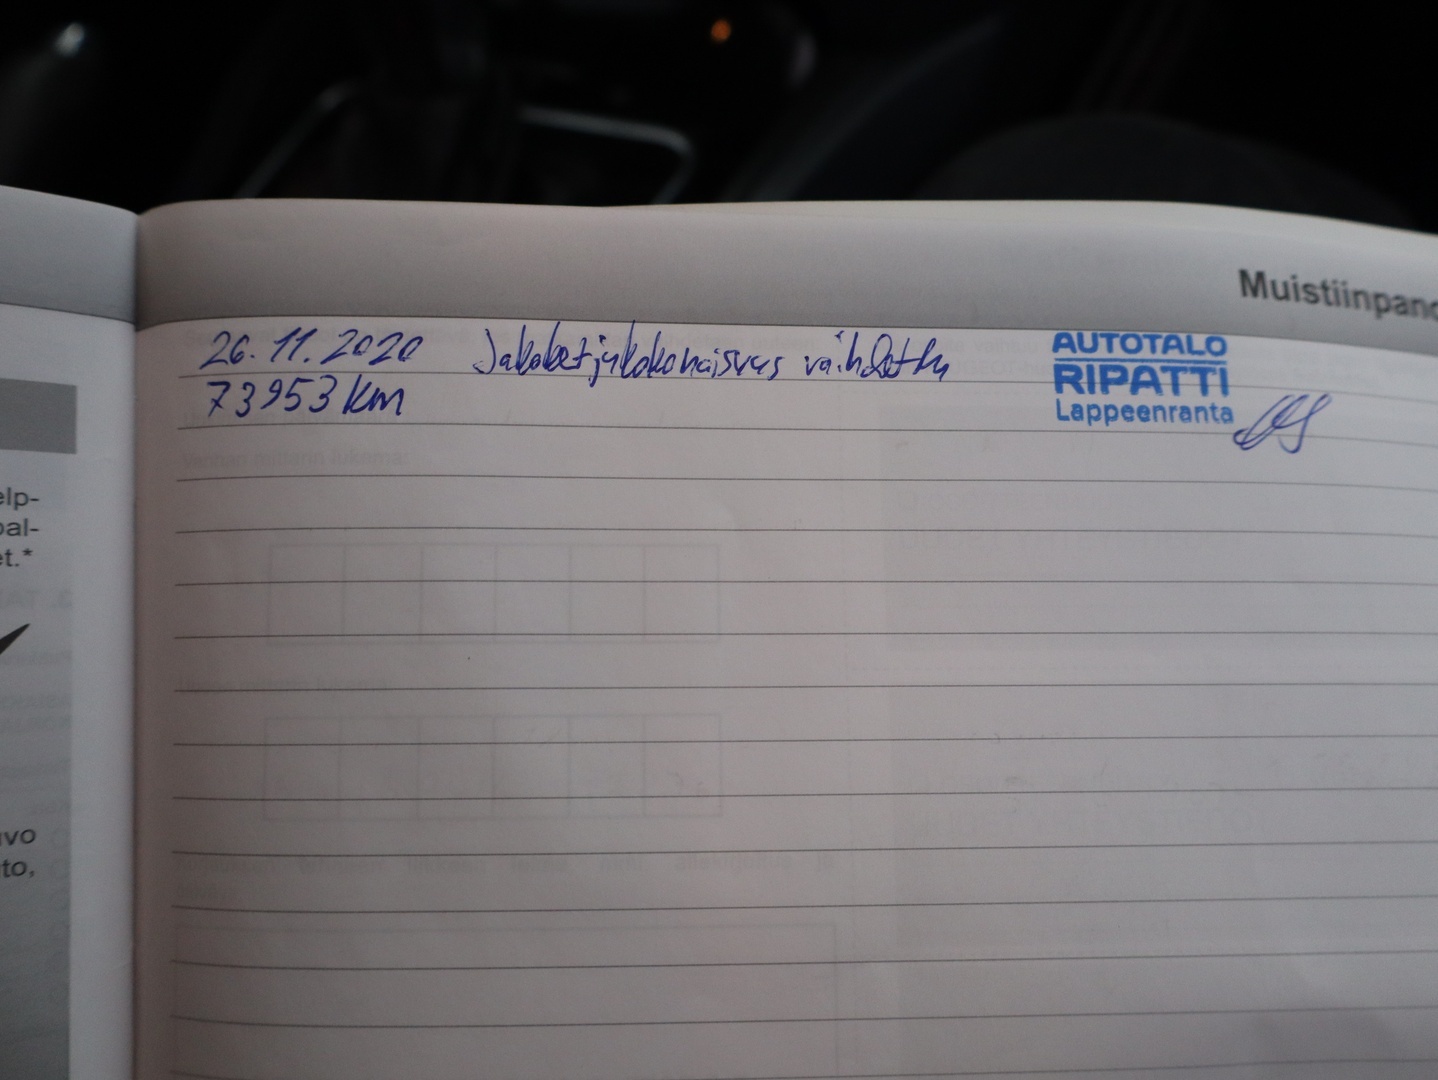 Muistiinpano
26.11.2020 Jakoketjukokonaisuus vaihdettu
73953 km
AUTOTALO
RIPATTI
Lappeenranta
elp-
pal-
et.*
vo
to,